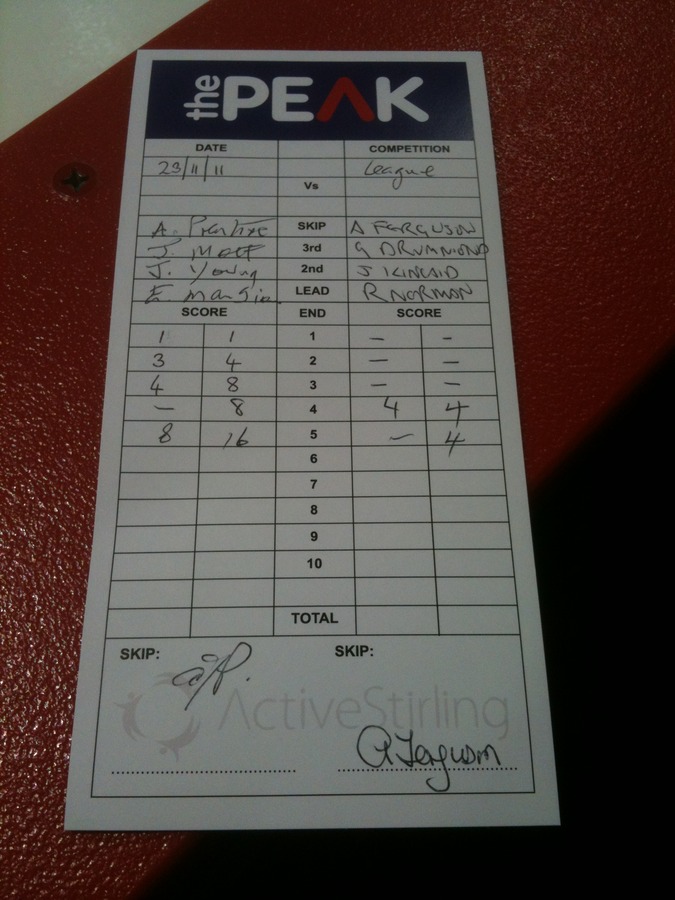 the PEAK
DATE COMPETITION
23/11/11 League
Vs
A. Prentice SKIP A FERGUSON
J. Mott 3rd G DRUMMOND
J. Young 2nd J KINCAID
E. LEAD R NORMAN
SCORE END SCORE
1 1 1 - -
3 4 2 - -
4 8 3 - -
- 8 4 4 4
8 16 5 - 4
6
7
8
9
10
TOTAL
SKIP: SKIP:
ActiveStirling
A Ferguson